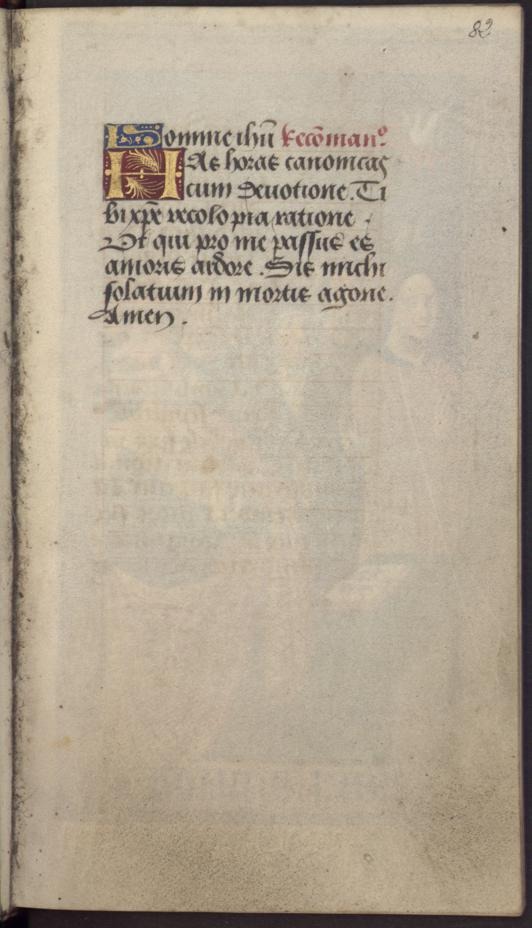 82
Domine ihu Recomano
HAs horas canonicas
cum deuotione. Ti
bi xpe recolo pia ratione.
Ut qui pro me passus es
amoris ardore. Sis michi
solatium in mortis agone.
Amen.